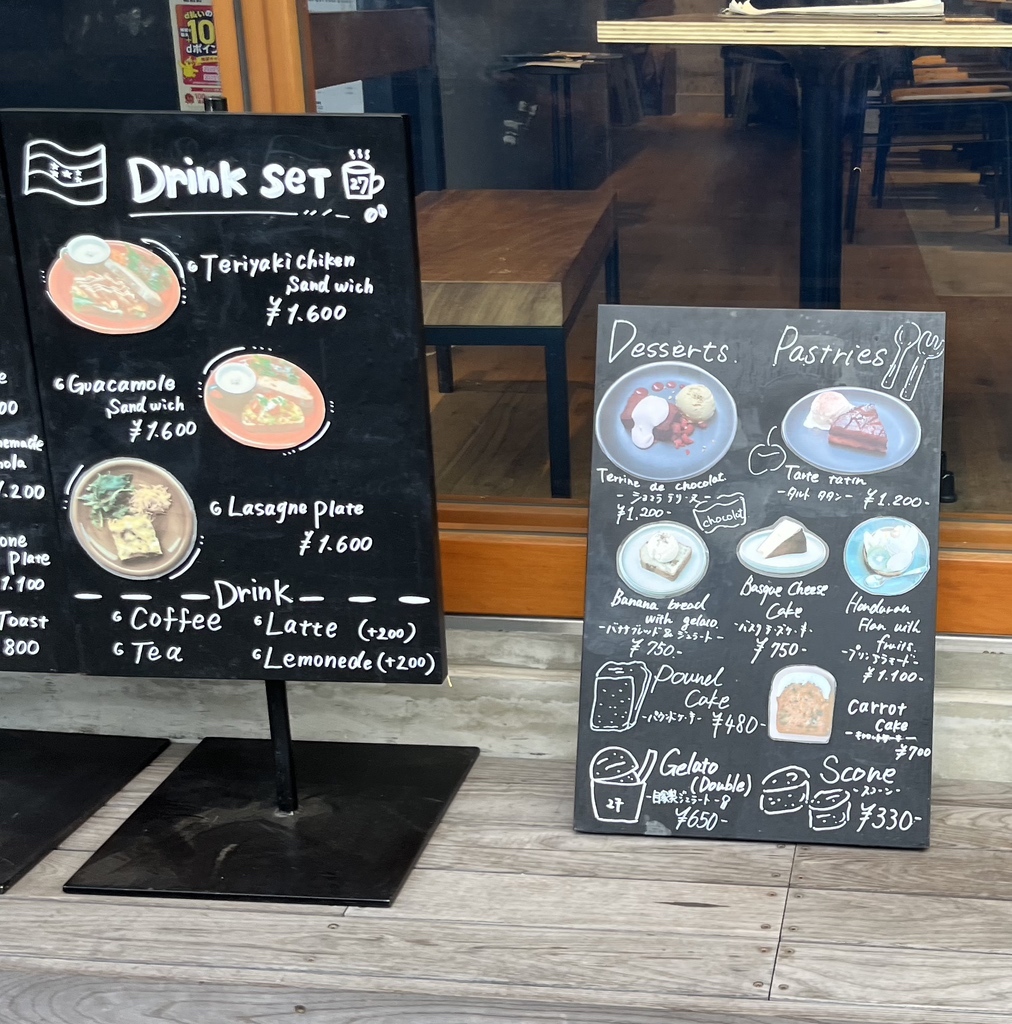 d払いの
10
dポイン
00
nola
1.200
Plate
1.100
Toast
800
Drink Set
27
Teriyaki chiken
Sand wich
¥1.600
Guacamole
Sand wich
¥1.600
Lasagne plate
¥1.600
Drink
Coffee
Latte (+200)
Tea
Lemonede (+200)
Desserts.
Pastries
Terrine de chocolat.
¥1.200-
chocolat
Tarte tatin
-タルト タタン-
¥1.200-
Banana bread
with gelato
-バナナブレッド&ジェラート-
¥750-
Basque Cheese
Cake
-バスクチーズケーキ-
¥750-
Honduran
Flan with
fruits.
-プリンアラモード-
¥1.100-
Pound
Cake
-パウンドケーキ-
¥480-
Carrot
Cake
-キャロットケーキ-
¥700
Gelato
(Double)
-自家製ジェラート-
27
¥650-
Scone
-スコーン-
¥330-